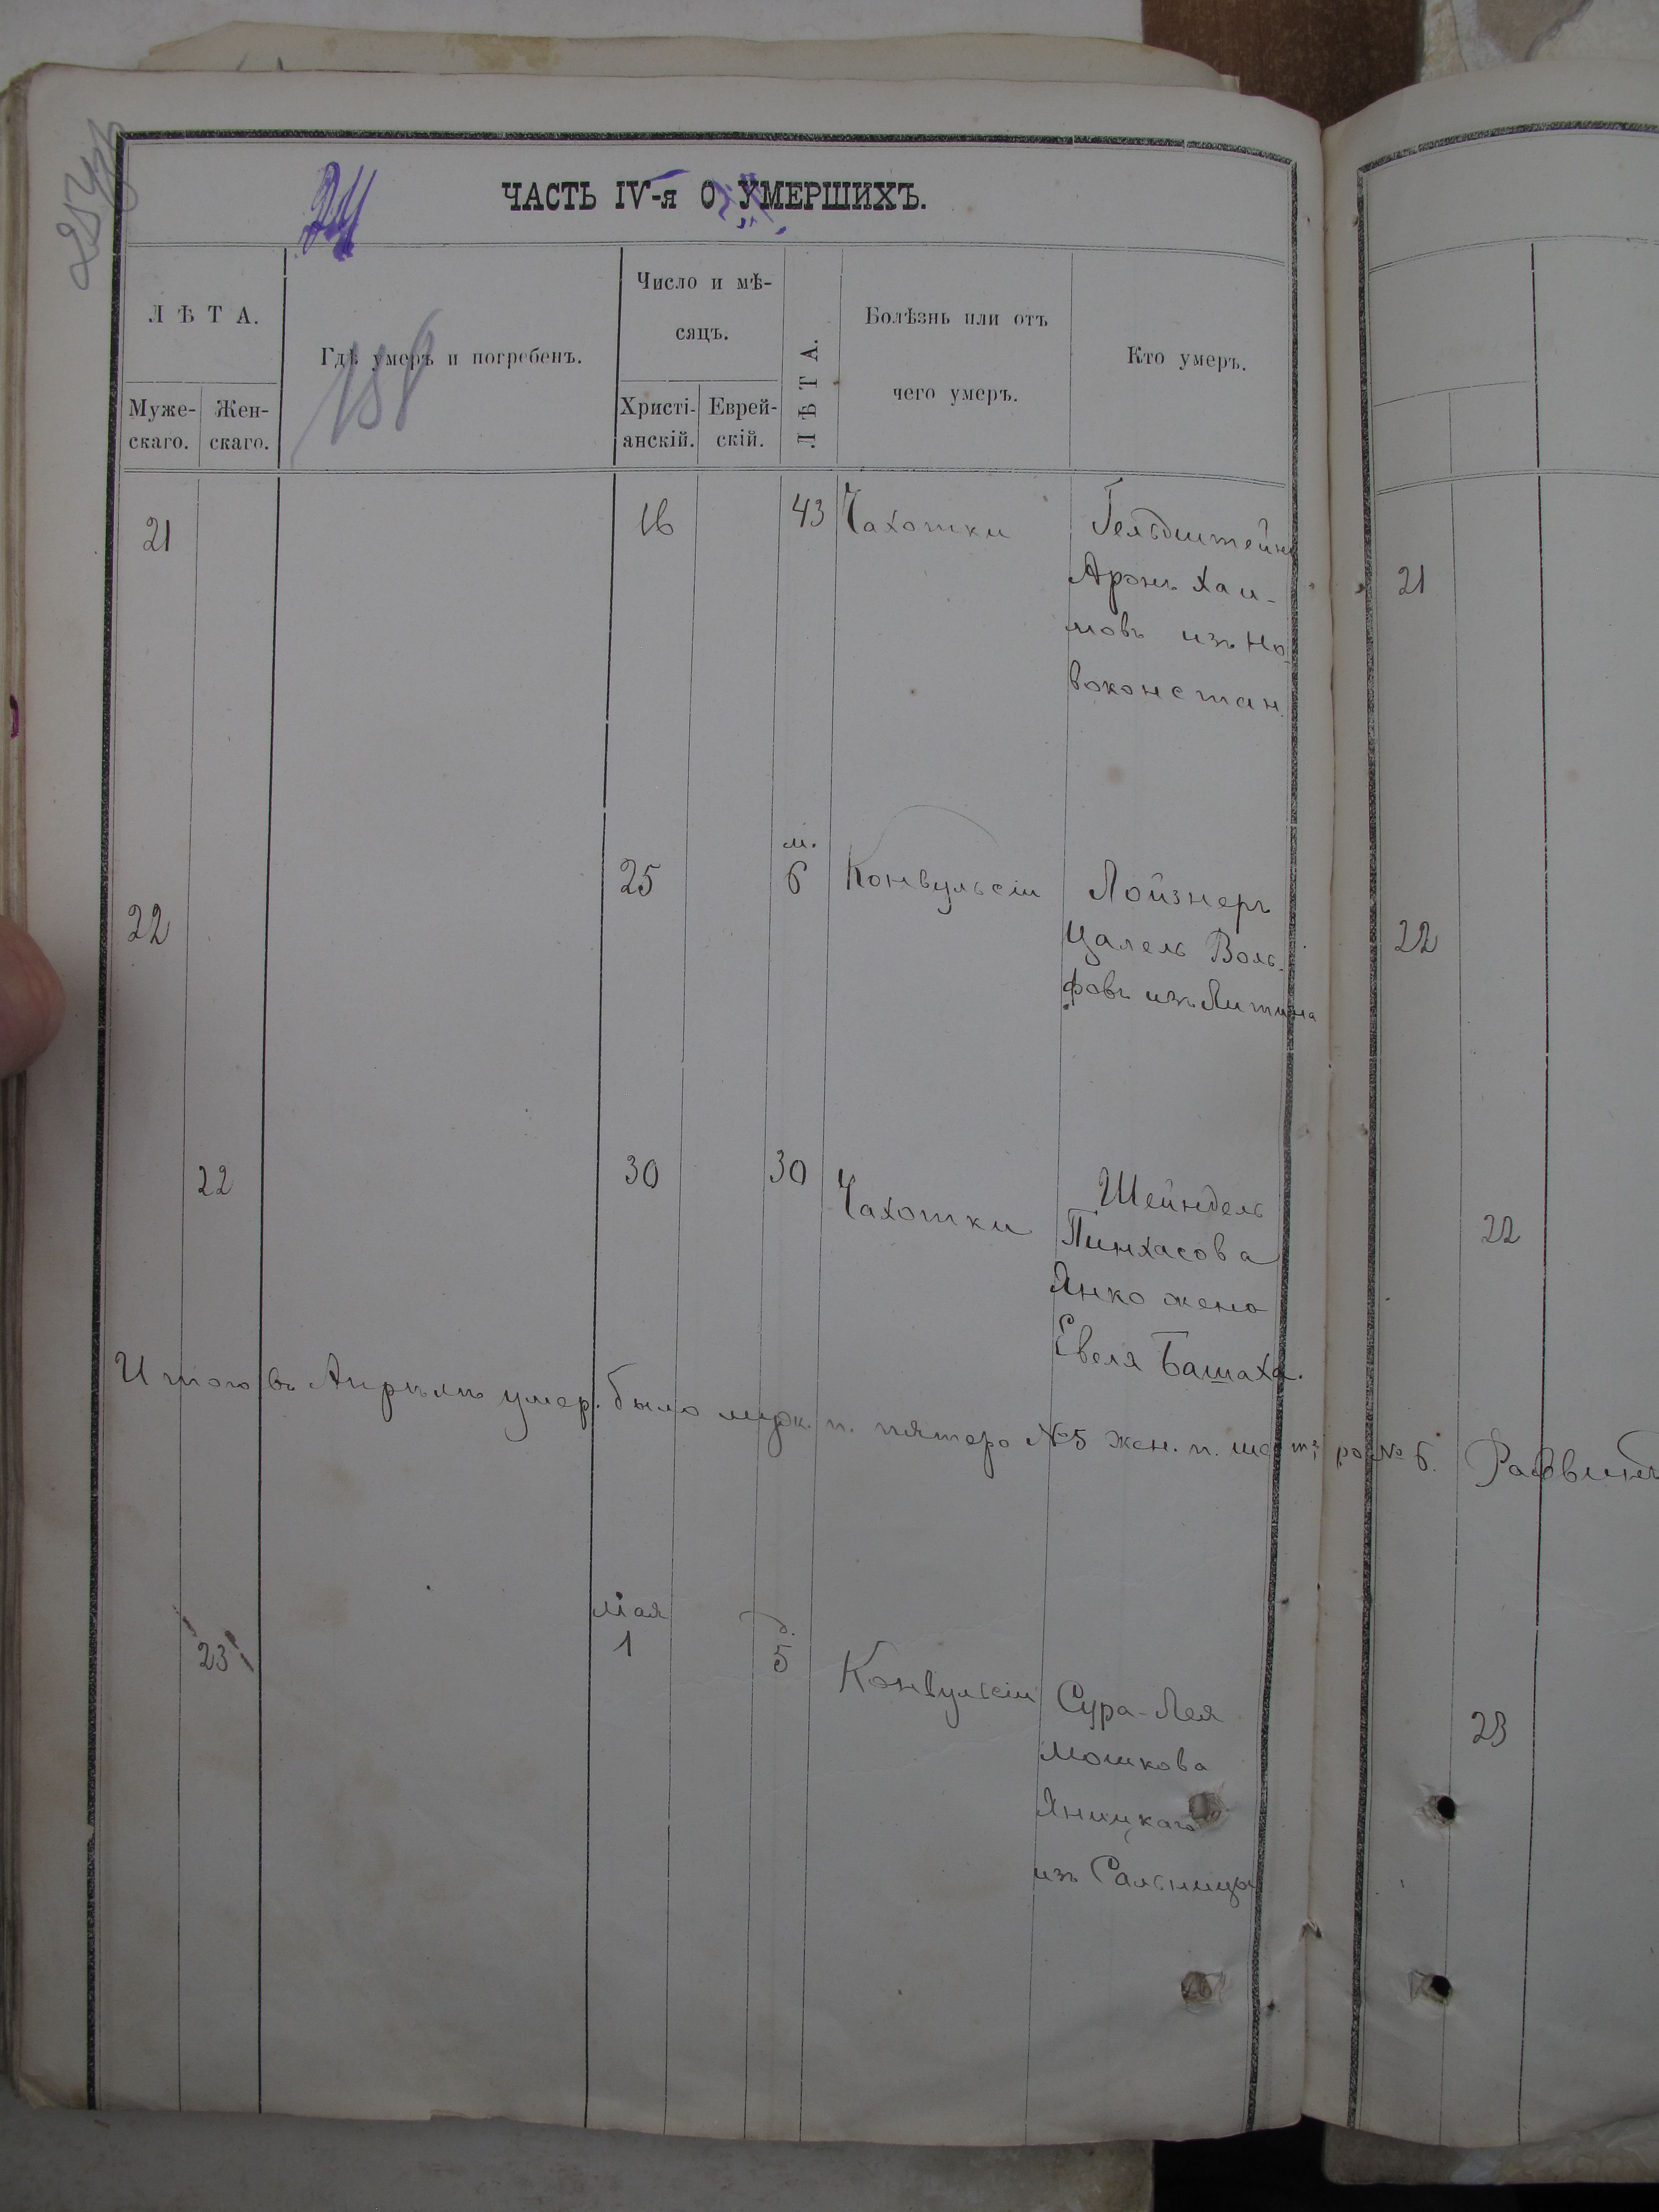 ЧАСТЬ IV-я О УМЕРШИХЪ.
24
158
ЛѢТА.
Муже-
скаго.
Жен-
скаго.
Гдѣ умеръ и погребенъ.
Число и мѣ-
сяцъ.
Христі-
анскій.
Еврей-
скій.
ЛѢТА.
Болѣзнь или отъ
чего умеръ.
Кто умеръ.
21
16
43
Чахотки
Гельдштейнъ
Аронъ Хаи-
мовъ изъ Но-
воконстан.
21
22
25
м.
6
Конвульсіи
Лойзнеръ
Цалель Воль-
фовъ изъ Литина
22
22
30
30
Чахотки
Шейндель
Пинхасова
Янко жена
Евеля Башаха.
22
Итого въ Апрѣлѣ умер. было муж. п. пятеро №5 жен. п. шестеро № 6. Раввинъ
23
мая
1
д.
5
Конвульсіи
Сура-Лея
Мошкова
Яницкаго
изъ Сальницы
23